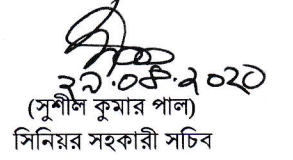 ২৯.০৪.২০২০
(সুশীল কুমার পাল)
সিনিয়র সহকারী সচিব